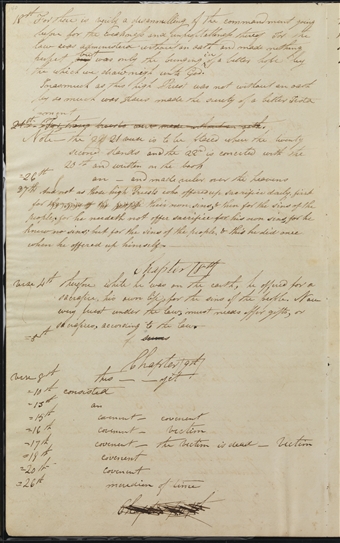 18th For there is verily a disannulling of the command ment going
before for the weakness and unprofitableness thereof. For the
law was administered without an oath and made nothing
perfect but was only the bringing in of a better hope by
the which we draw nigh unto God
Inasmuch as this high Priest was not without an oath
by so much was Jesus made the surety of a better Testa
ment
21th For those priests were made without an oath
Note the 21 is to be placed where the twenty
second stands and the 22d is conected with the
23th and written in the book
=26th an — and made ruler over the heavens
27th And not as those high Priests who offered up sacrifice daily, first
for their own sins, & then for the sins of the
people; for he needeth not offer sacrifice for his own sins, for he
knew no sins; but for the sins of the people, & this he did once
when he offered up himself.
Chapter 8th
verse 4th Therefore while he was on the earth, he offered for a
sacrifice, his own life, for the sins of the people. Now
every Priest under the law, must needs offer gifts, or
sacrifices, according to the law.
Chapter 9th
verse 8th this — yet
=10th consisted
an
=15th covenent — covenent
=16th covenent — victim
=17th covenent — the victim is dead — victim
=18th covenent
=20th covenent
=26th meridian of time
Chapter